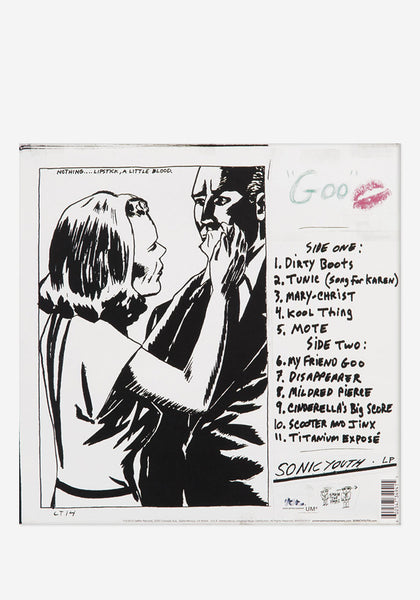 NOTHING.... LIPSTICK, A LITTLE BLOOD.
"GOO"
SIDE ONE:
1. DIRTY BOOTS
2. TUNIC (SONG FOR KAREN)
3. MARY-CHRIST
4. KOOL THING
5. MOTE
SIDE TWO:
6. MY FRIEND GOO
7. DISAPPEARER
8. MILDRED PIERCE
9. CINDERELLA'S BIG SCORE
10. SCOOTER AND JINX
11. TITANIUM EXPOSÉ
SONIC YOUTH . LP
UMe